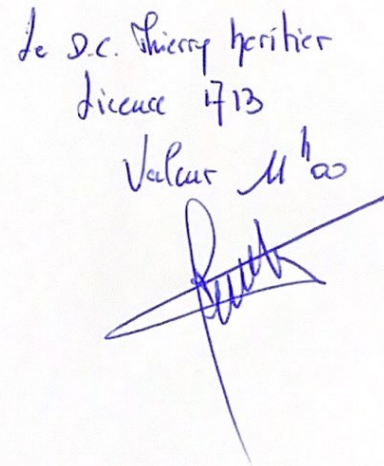 Le D.C. Thierry héritier
Licence 1713
Valeur 11h00